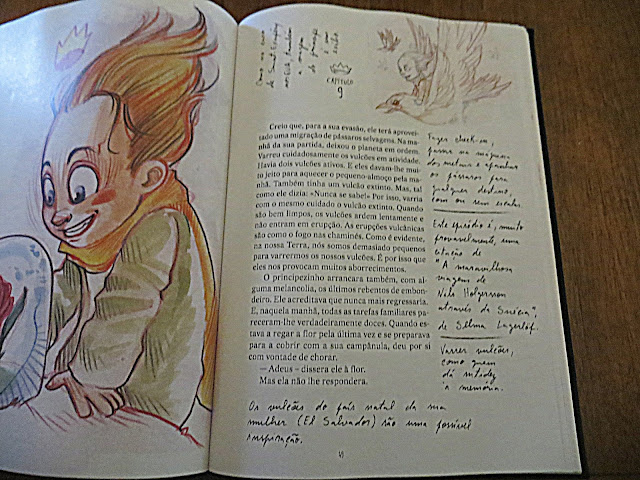 CAPÍTULO
9
Creio que, para a sua evasão, ele terá aprovei-
tado uma migração de pássaros selvagens. Na ma-
nhã da sua partida, deixou o planeta em ordem.
Varreu cuidadosamente os vulcões em atividade.
Havia dois vulcões ativos. E eles davam-lhe mui-
to jeito para aquecer o pequeno-almoço pela ma-
nhã. Também tinha um vulcão extinto. Mas, tal
como ele dizia: «Nunca se sabe!» Por isso, varria
com o mesmo cuidado o vulcão extinto. Quando
são bem limpos, os vulcões ardem lentamente e
não entram em erupção. As erupções vulcânicas
são como o fogo nas chaminés. Como é evidente,
na nossa Terra, nós somos demasiado pequenos
para varrermos os nossos vulcões. É por isso que
eles nos provocam muitos aborrecimentos.
O principezinho arrancara também, com al-
guma melancolia, os últimos rebentos de embon-
deiro. Ele acreditava que nunca mais regressaria.
E, naquela manhã, todas as tarefas familiares pa-
receram-lhe verdadeiramente doces. Quando es-
tava a regar a flor pela última vez e se preparava
para a cobrir com a sua campânula, deu por si
com vontade de chorar.
— Adeus – dissera ele à flor.
Mas ela não lhe respondera.
Fazer check-in,
passar na máquina
dos metais e apanhar
os pássaros para
qualquer destino,
com ou sem escalas.
Este episódio é, muito
provavelmente, uma
citação de
"A maravilhosa
viagem de
Nils Holgersson
através da Suécia",
de Selma Lagerlöf.
Varrer vulcões,
como quem
dá nitidez
à memória.
Os vulcões do país natal da sua
mulher (El Salvador) são uma possível
inspiração.